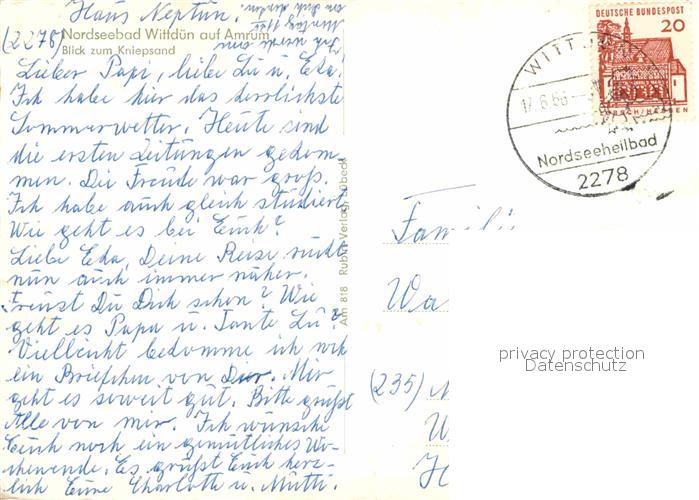 Haus Neptun.
(2278) Nordseebad Wittdün auf Amrum
Blick zum Kniepsand
Lieber Papi, liebe Lu u. Eka.
Ich habe hier das herrlichste
Sommerwetter. Heute sind
die ersten Zeitungen gekom-
men. Die Freude war groß.
Ich habe auch gleich studiert.
Wie geht es bei Euch?
Liebe Eka, Deine Reise rückt
nun auch immer näher.
Freust Du Dich schon? Wie
geht es Papa u. Tante Lu?
Vielleicht bekomme ich noch
ein Briefchen von Dir. Mir
geht es soweit gut. Bitte grüßt
Alle von mir. Ich wünsche
Euch noch ein gemütliches Wo-
chenende. Es grüßt Euch herz-
lich Eure Charlotte u. Mutti.
Am 818 Rubin-Verlag Lübeck
DEUTSCHE BUNDESPOST
20
WITTDÜN
17.6.66
Nordseeheilbad
2278
Famili
Wa
(235)
privacy protection
Datenschutz